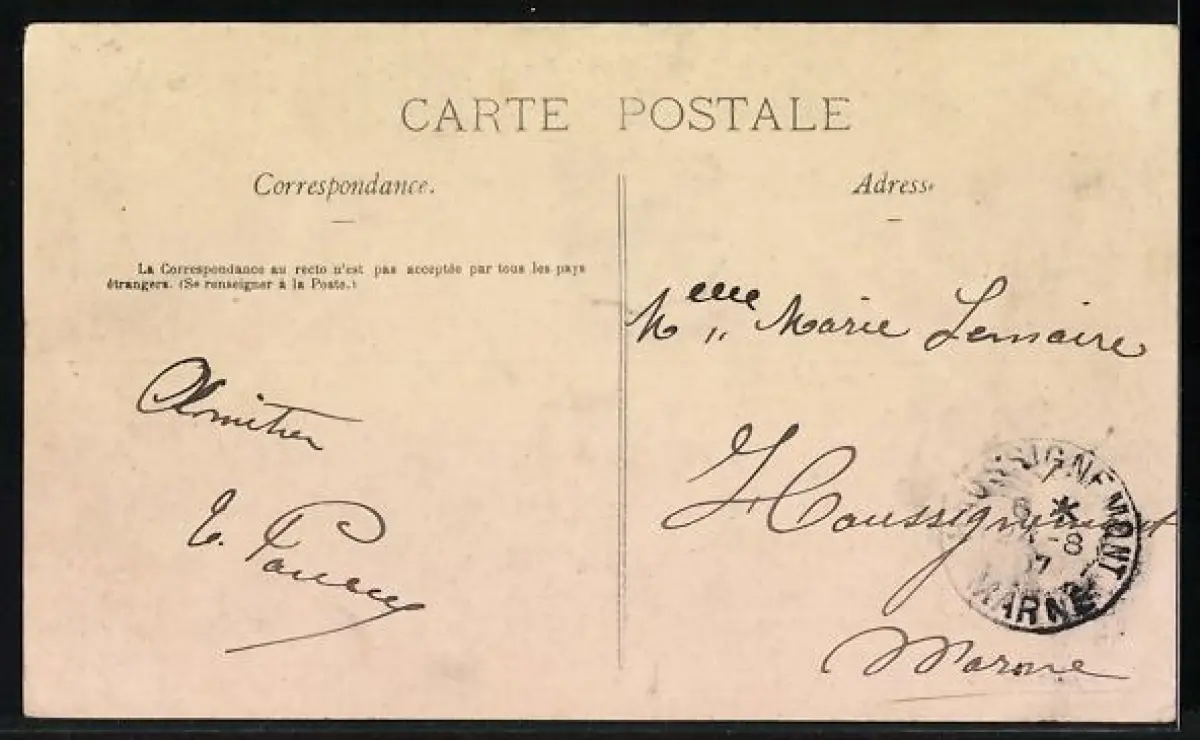 CARTE POSTALE
Correspondance.
Adresse
La Correspondance au recto n'est pas acceptée par tous les pays
étrangers. (Se renseigner à la Poste.)
Melle Marie Lemaire
Amitiés
E.
Coussignemont
MARNE
Marne